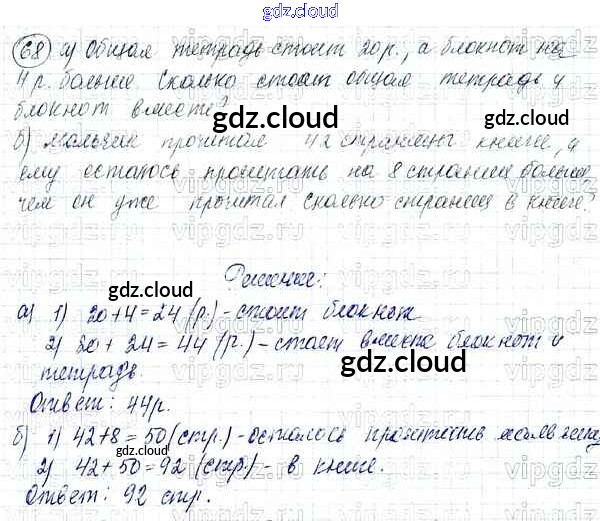 gdz.cloud
68 а) Общая тетрадь стоит 20 р., а блокнот на
4 р. больше. Сколько стоит общая тетрадь и
блокнот вместе?
gdz.cloud
б) Мальчик прочитал 42 страницы книги, и
ему осталось прочитать на 8 страниц больше,
чем он уже прочитал сколько страниц в книге?
gdz.cloud
Решение:
gdz.cloud
а) 1) 20+4=24 (р.) - стоит блокнот
2) 20 + 24 = 44 (р.) - стоят вместе блокнот и
gdz.cloud
тетрадь.
Ответ: 44р.
gdz.cloud
б) 1) 42+8=50 (стр.) - осталось прочитать
2) 42+50=92 (стр.) - в книге.
gdz.cloud
Ответ: 92 стр.